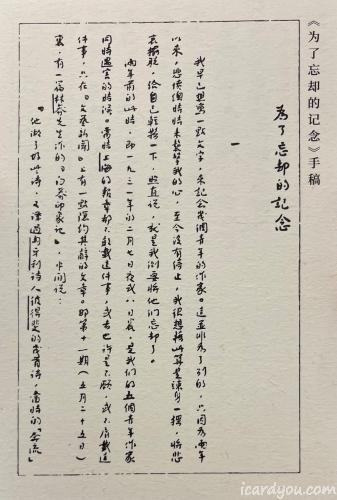 《为了忘却的记念》手稿
為了忘却的記念
一
我早已想寫一點文字,來記念幾個青年的作家。這並非為了別的,只因為兩年
以來,悲憤總時時來襲擊我的心,至今沒有停止,我很想藉此算是竦身一搖,將悲
哀擺脫,給自己輕鬆一下,照直說,就是我倒要將他們忘却了。
兩年前的此時,即一九三一年的二月七日夜或八日晨,是我們的五個青年作家
同時遇害的時候。當時上海的報章都不敢載這件事,或者也許是不願,或不屑載這
件事,只在『文藝新聞』上有一點隱約其辭的文章。那第十一期(五月二十五日)
裏,有一篇林莽先生作的『白莽印象記』,中間說:
『他做了好些詩,又譯過匈牙利詩人彼得斐的幾首詩,當時的『奔流』
icardyou.com